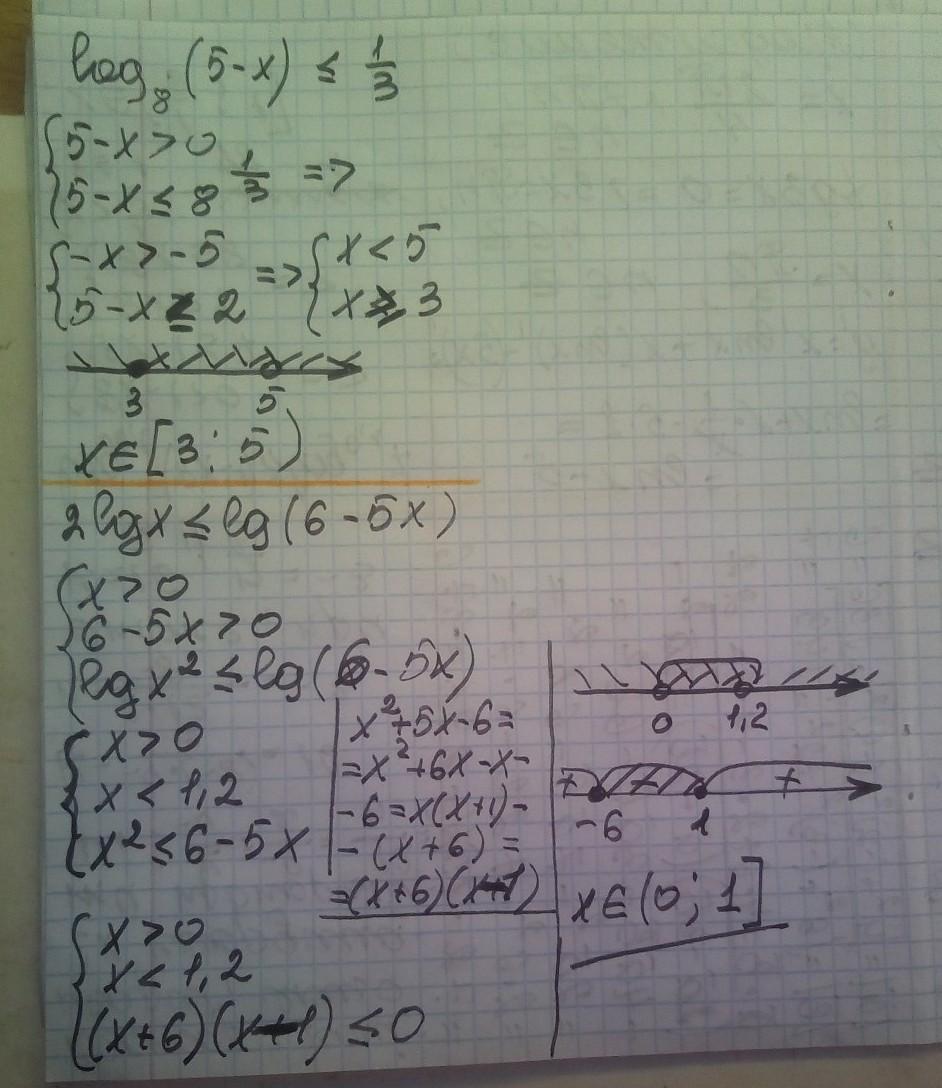 log₈(5-x) ≤ 1/3
{5-x>0
{5-x≤8^(1/3) =>
{-x>-5 => {x<5
{5-x≤2 {x≥3
3 5
x∈[3; 5)
2lgx≤lg(6-5x)
{x>0
{6-5x>0
{lgx²≤lg(6-5x)
{x>0
{x<1,2
{x²≤6-5x
x²+5x-6=
=x²+6x-x-
-6=x(x+1)-
-(x+6)=
=(x+6)(x-1)
{x>0
{x<1,2
{(x+6)(x-1)≤0
0 1,2
+ +
-6 1
x∈(0; 1]